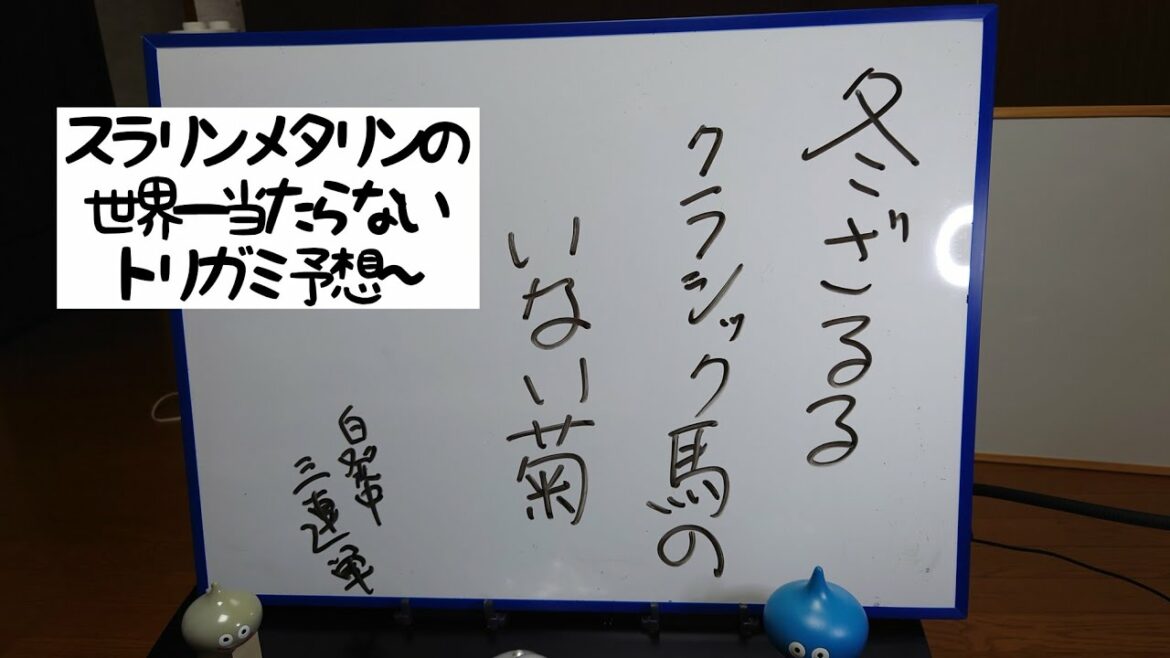 スラリンメタリンの
世界一当たらない
トリガミ予想～
冬ざるる
クラシック馬の
いない菊
三連単